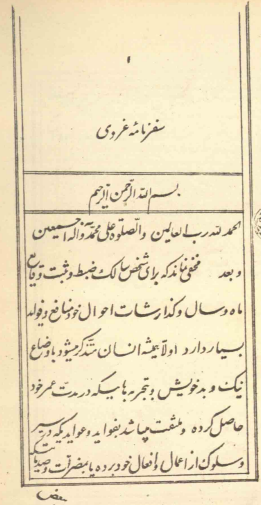 ۱
سفرنامهٔ غروی
بسم الله الرحمن الرحیم
الحمد لله رب العالمین والصلوة علی محمد وآله اجمعین
و بعد مخفی نماند که برای شخص سالک ضبط و ثبت وقایع
ماه و سال و گذارشات احوال خود منافع و فواید
بسیار دارد اولا همیشه انسان متذکر میشود باوضاع
نیک و بد خویش و تجربه هائیکه در مدت عمر خود
حاصل کرده و ملتفت میباشد بفواید و عوایدیکه در سیر
و سلوک از اعمال و افعال خود برده یا بمضرت و صدماتیکه